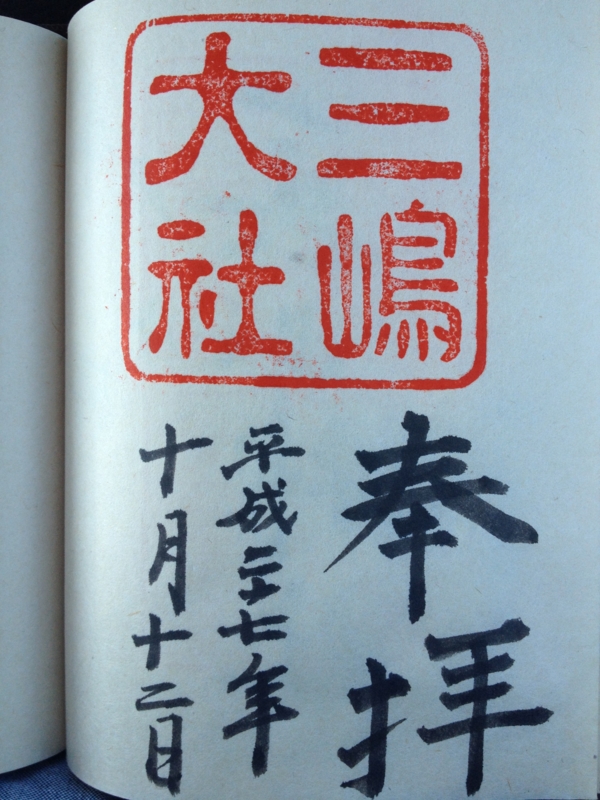 三嶋
大社
奉拝
平成二十七年
十月十二日